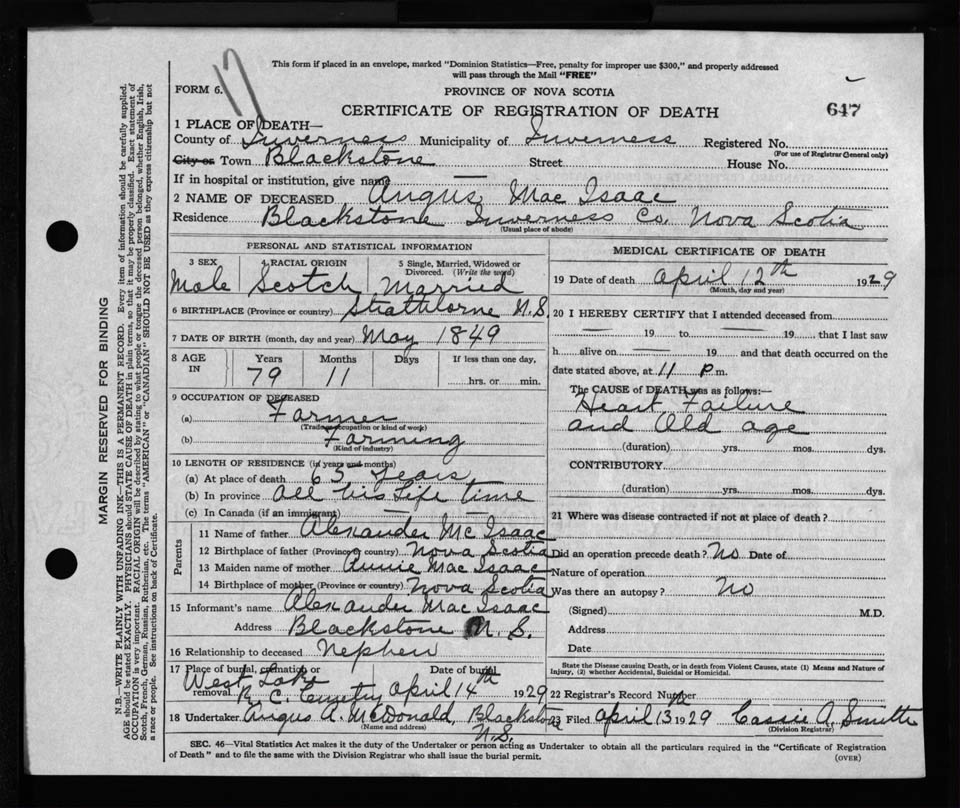 17
This form if placed in an envelope, marked "Dominion Statistics—Free, penalty for improper use $300," and properly addressed
will pass through the Mail "FREE"
FORM 6.
PROVINCE OF NOVA SCOTIA
CERTIFICATE OF REGISTRATION OF DEATH
647
1 PLACE OF DEATH—
County of Inverness Municipality of Inverness Registered No.
(For use of Registrar General only)
City or Town Blackstone Street House No.
If in hospital or institution, give name —
2 NAME OF DECEASED Angus Mac Isaac
Residence Blackstone Inverness Co. Nova Scotia
(Usual place of abode)
PERSONAL AND STATISTICAL INFORMATION
3 SEX 4 RACIAL ORIGIN 5 Single, Married, Widowed or
Divorced. (Write the word)
Male Scotch Married
6 BIRTHPLACE (Province or country) Strathlorne N.S.
7 DATE OF BIRTH (month, day and year) May 1849
8 AGE
IN
Years Months Days If less than one day,
79 11 hrs. or min.
9 OCCUPATION OF DECEASED
(a) Farmer
(Trade, occupation or kind of work)
(b) Farming
(Kind of industry)
10 LENGTH OF RESIDENCE (in years and months)
(a) At place of death 65 years
(b) In province all his Life time
(c) In Canada (if an immigrant) — —
Parents
11 Name of father Alexander Mc Isaac
12 Birthplace of father (Province or country) Nova Scotia
13 Maiden name of mother Annie Mac Isaac
14 Birthplace of mother (Province or country) Nova Scotia
15 Informant's name Alexander Mac Isaac
Address Blackstone N.S.
16 Relationship to deceased Nephew
17 Place of burial, cremation or
removal West Lake R.C. Cemetry
Date of burial April 14th 1929
18 Undertaker Angus A. McDonald, Blackstone N.S.
(Name and address)
MEDICAL CERTIFICATE OF DEATH
19 Date of death April 12th 1929
(Month, day and year)
20 I HEREBY CERTIFY that I attended deceased from
— 19 to — 19 , that I last saw
h alive on — 19 and that death occurred on the
date stated above, at 11 P m.
The CAUSE of DEATH was as follows:—
Heart Failure
and Old age
(duration) yrs. mos. dys.
CONTRIBUTORY
(duration) yrs. mos. dys.
21 Where was disease contracted if not at place of death?
Did an operation precede death? No Date of
Nature of operation
Was there an autopsy? No
(Signed) M.D.
Address
Date
State the Disease causing Death, or in death from Violent Causes, state (1) Means and Nature of
Injury, (2) whether Accidental, Suicidal or Homicidal.
22 Registrar's Record Number
23 Filed April 13th 1929 Cassie A. Smith
(Division Registrar)
SEC. 46—Vital Statistics Act makes it the duty of the Undertaker or person acting as Undertaker to obtain all the particulars required in the "Certificate of Registration
of Death" and to file the same with the Division Registrar who shall issue the burial permit.
(OVER)
MARGIN RESERVED FOR BINDING
N.B.—WRITE PLAINLY WITH UNFADING INK—THIS IS A PERMANENT RECORD. Every item of information should be carefully supplied.
AGE should be stated EXACTLY. PHYSICIANS should STATE CAUSE OF DEATH in plain terms, so that it may be properly classified. Exact statement of
OCCUPATION is very important. RACIAL ORIGIN will be described by stating to what people or tongue the deceased person belonged, whether English, Irish,
Scotch, French, German, Russian, Ruthenian, etc. The terms "AMERICAN" or "CANADIAN" SHOULD NOT BE USED as they express citizenship but not
a race or people. See instructions on back of Certificate.